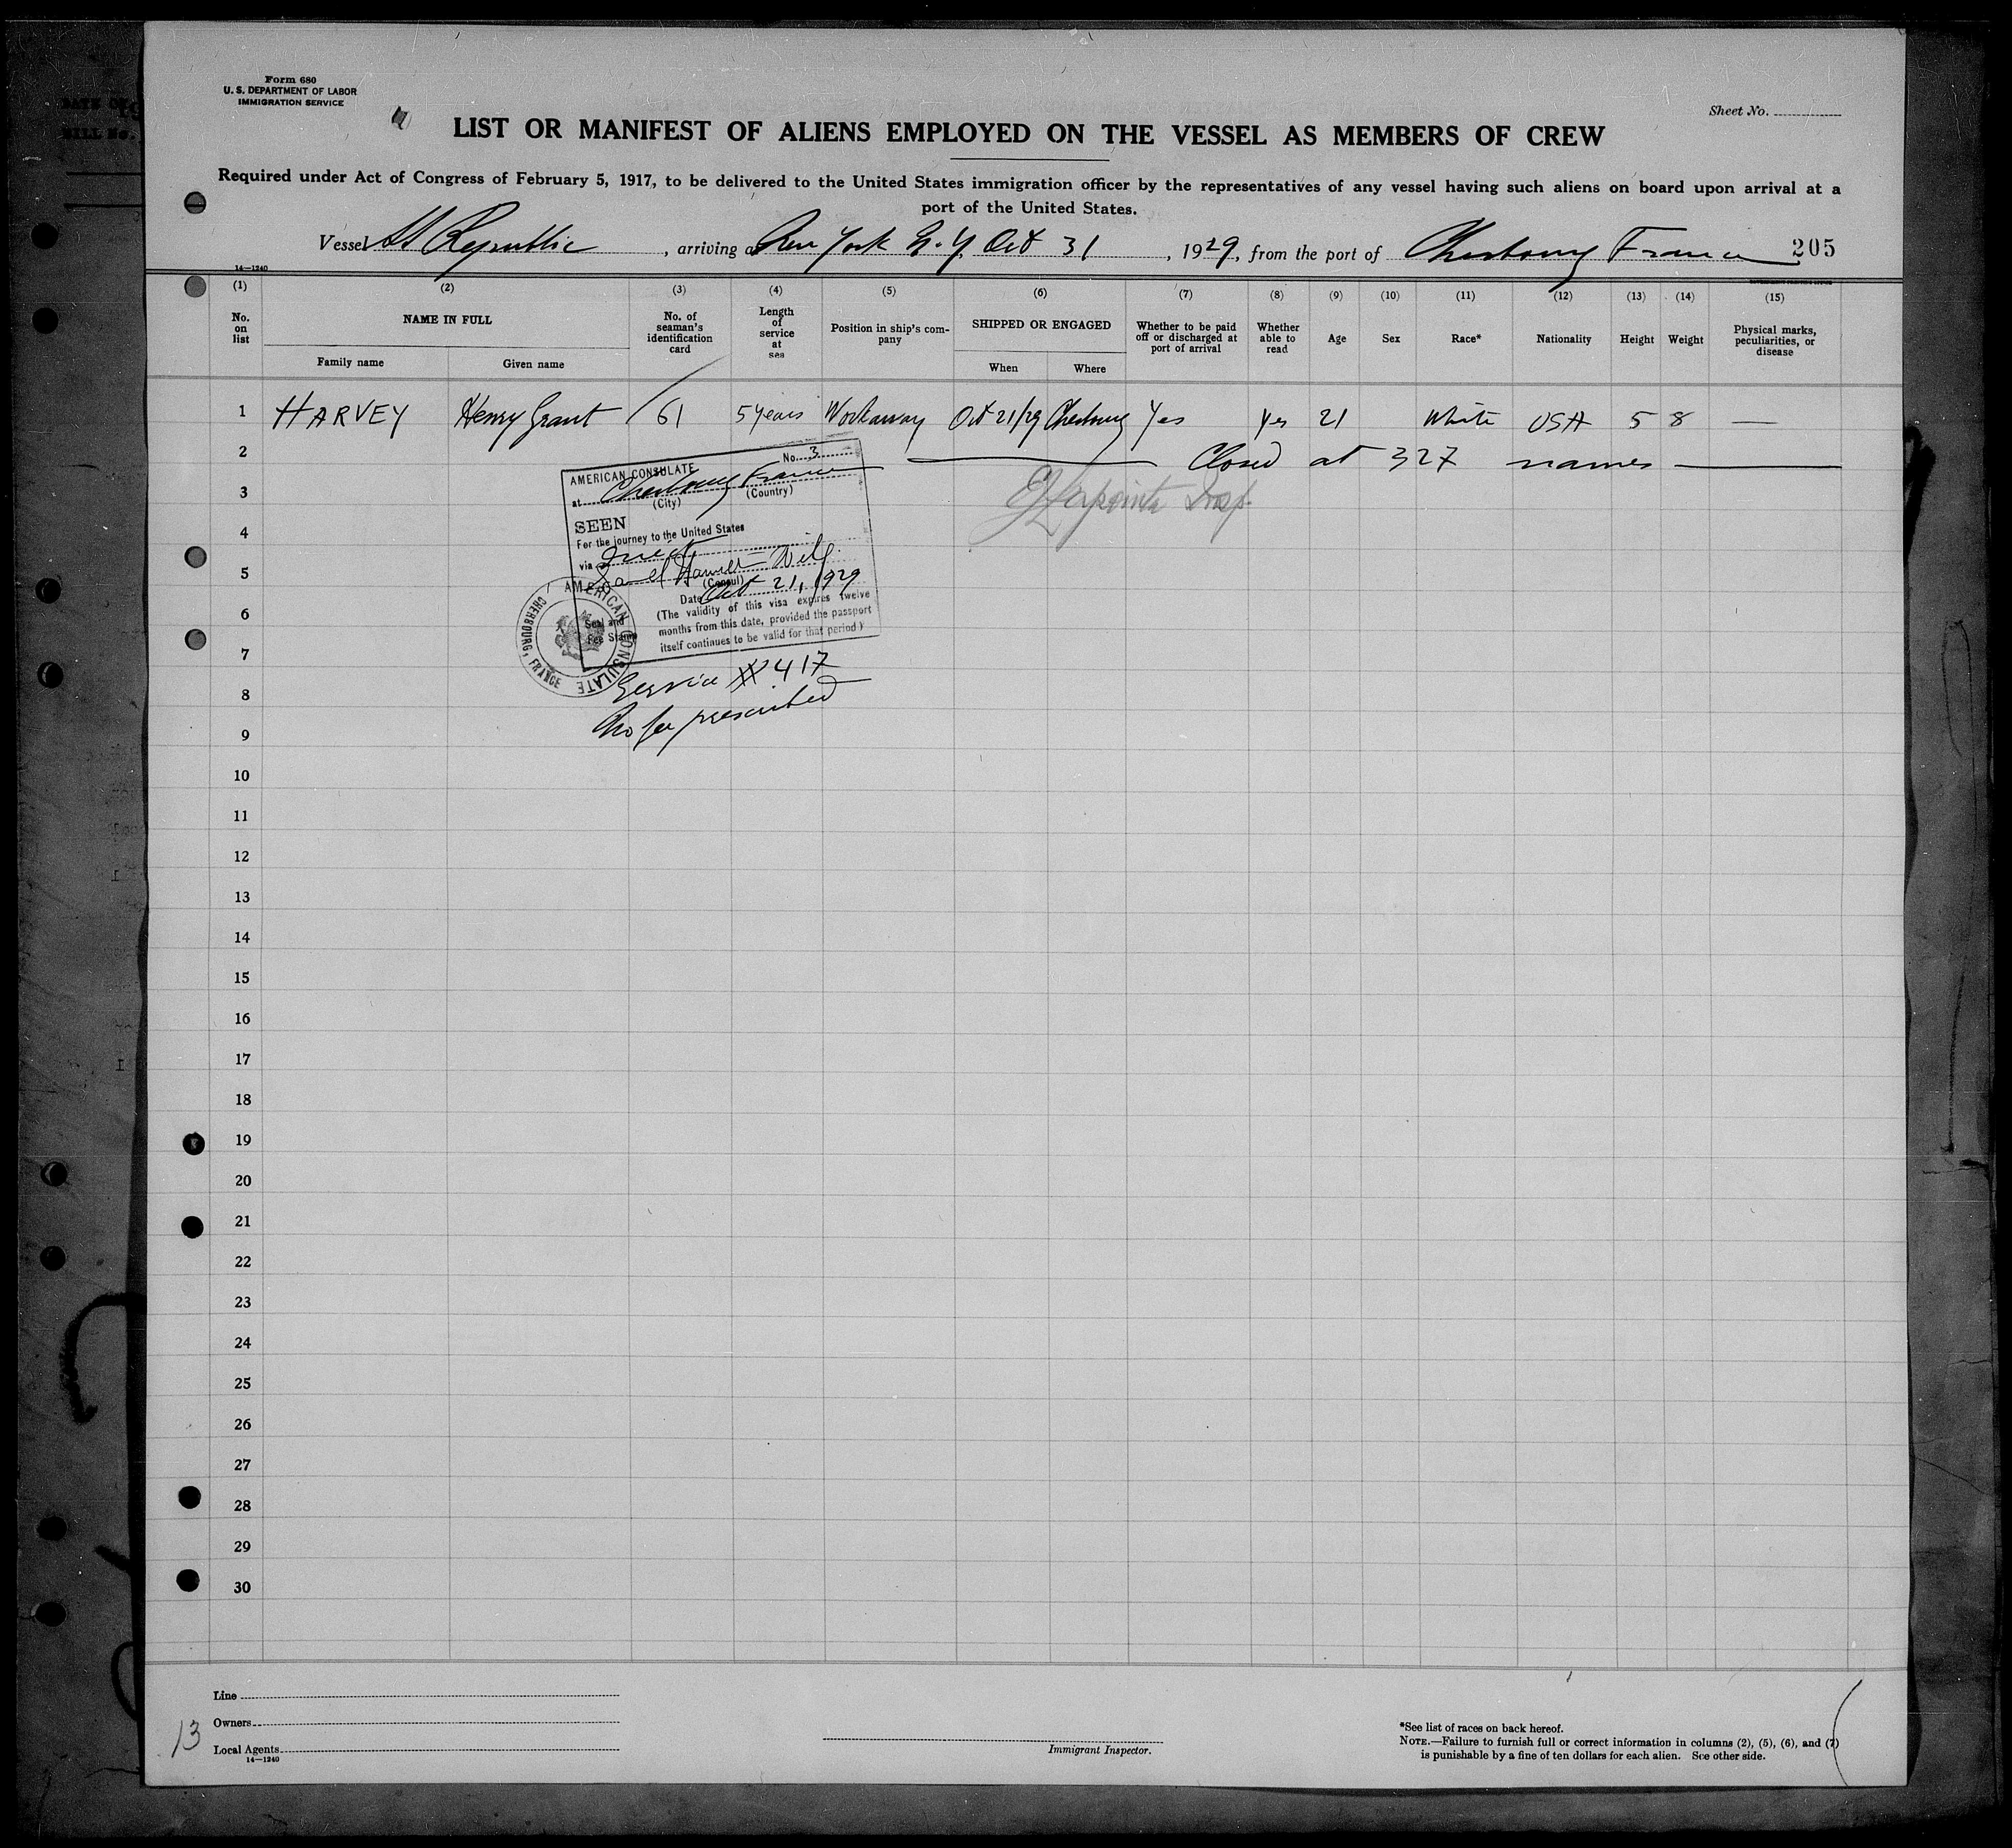 Form 680
U. S. DEPARTMENT OF LABOR
IMMIGRATION SERVICE
Sheet No.
LIST OR MANIFEST OF ALIENS EMPLOYED ON THE VESSEL AS MEMBERS OF CREW
Required under Act of Congress of February 5, 1917, to be delivered to the United States immigration officer by the representatives of any vessel having such aliens on board upon arrival at a
port of the United States.
Vessel SS Republic, arriving at New York N.Y. Oct 31, 1929, from the port of Cherbourg France 205
14—1240
(1) (2) (3) (4) (5) (6) (7) (8) (9) (10) (11) (12) (13) (14) (15)
No. on list
NAME IN FULL
Family name
Given name
No. of seaman's identification card
Length of service at sea
Position in ship's company
SHIPPED OR ENGAGED
When
Where
Whether to be paid off or discharged at port of arrival
Whether able to read
Age
Sex
Race*
Nationality
Height
Weight
Physical marks, peculiarities, or disease
1 HARVEY Henry Grant 61 5 years Workaway Oct 21/29 Cherbourg Yes Yes 21 White USA 5 8 —
2 Closed at 327 names
3
4
5
6
7
8
9
10
11
12
13
14
15
16
17
18
19
20
21
22
23
24
25
26
27
28
29
30
AMERICAN CONSULATE No. 3
at Cherbourg France
(City) (Country)
SEEN
For the journey to the United States
via Direct
(Consul)
Date Oct 21, 1929
(The validity of this visa expires twelve
months from this date, provided the passport
itself continues to be valid for that period)
Seal and
Fee Stamp
AMERICAN CONSULATE
CHERBOURG, FRANCE
Service #417
No fee prescribed
Insp.
Line
Owners
Local Agents
14—1240
13
Immigrant Inspector.
*See list of races on back hereof.
NOTE.—Failure to furnish full or correct information in columns (2), (5), (6), and (7)
is punishable by a fine of ten dollars for each alien. See other side.